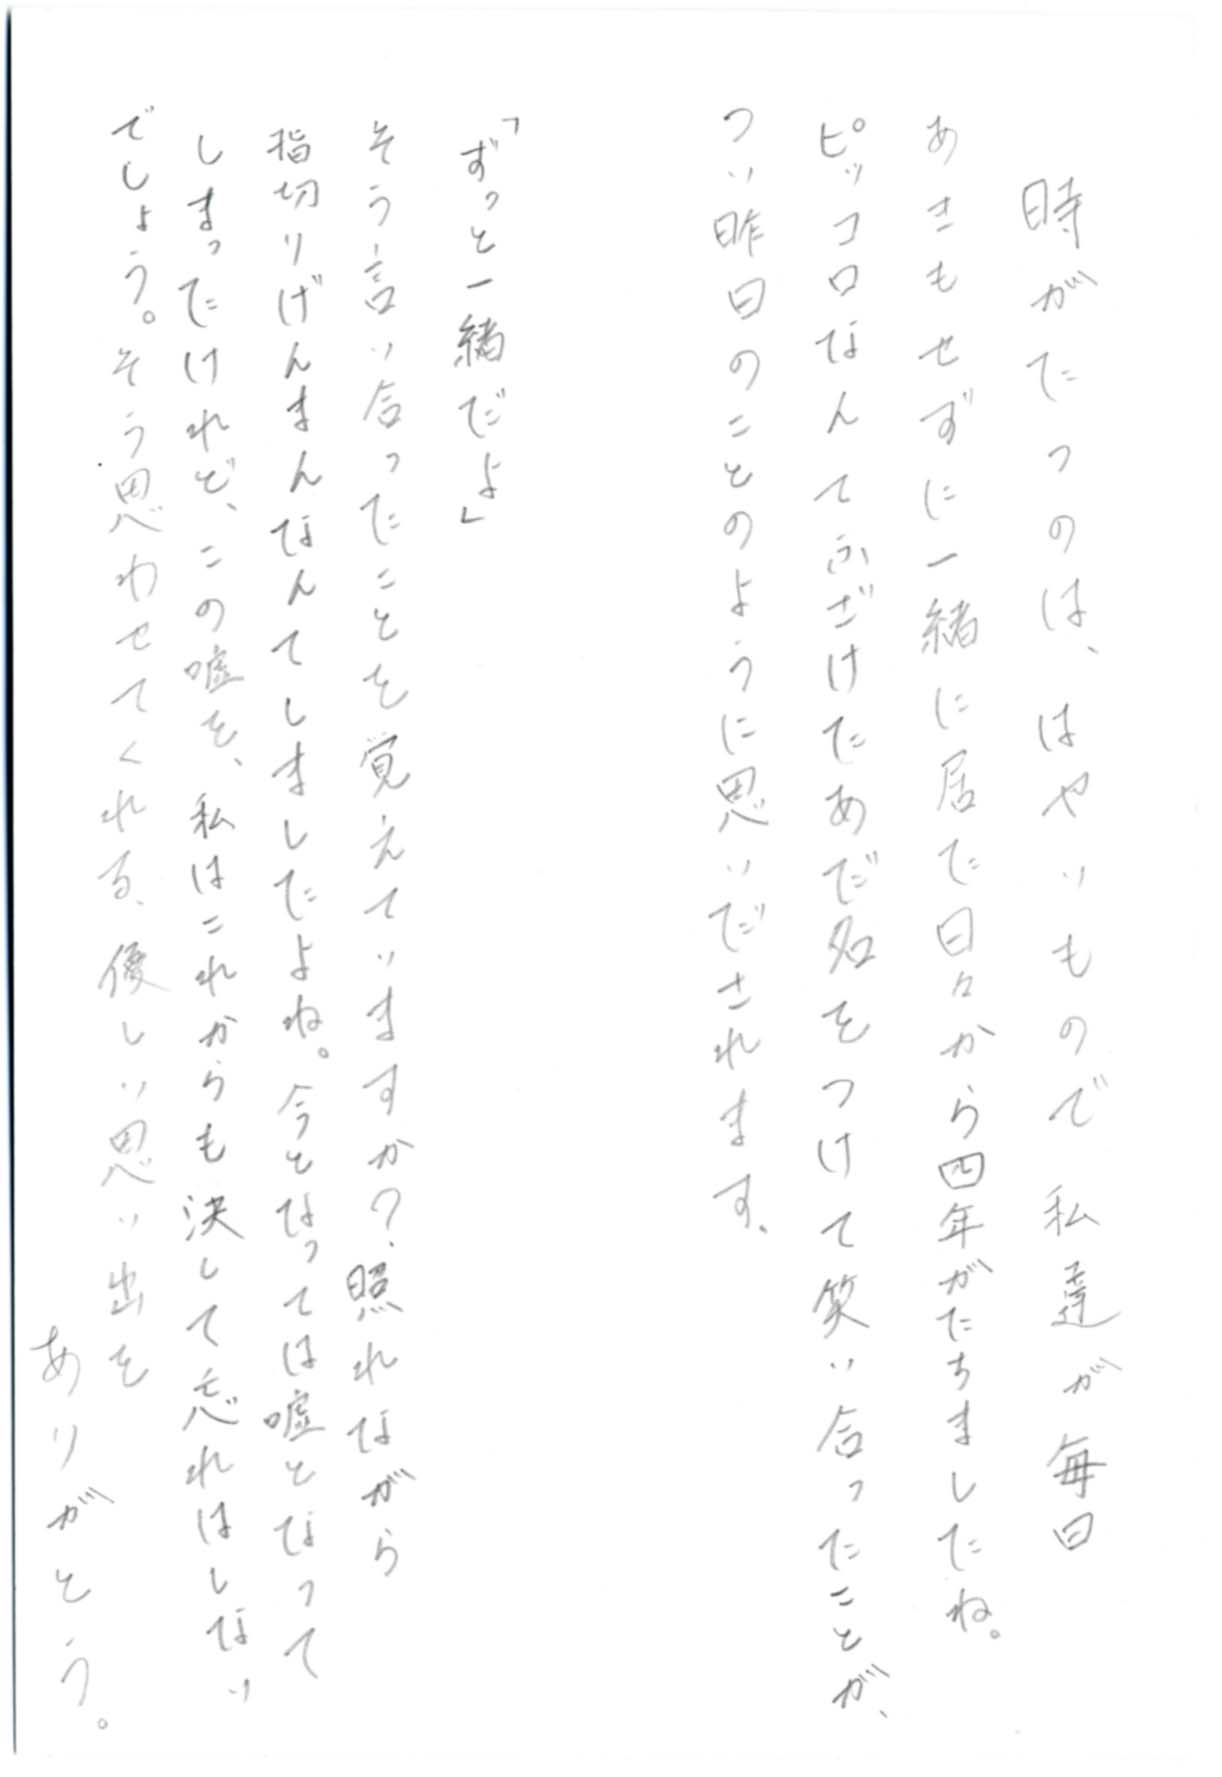 時がたつのは、はやいもので私達が毎日
あきもせずに一緒に居た日々から四年がたちましたね。
ピッコロなんてふざけたあだ名をつけて笑い合ったことが、
つい昨日のことのように思いだされます。
「ずっと一緒だよ」
そう言い合ったことを覚えていますか？照れながら
指切りげんまんなんてしましたよね。今となっては嘘となって
しまったけれど、この嘘を、私はこれからも決して忘れはしない
でしょう。そう思わせてくれる、優しい思い出を
ありがとう。